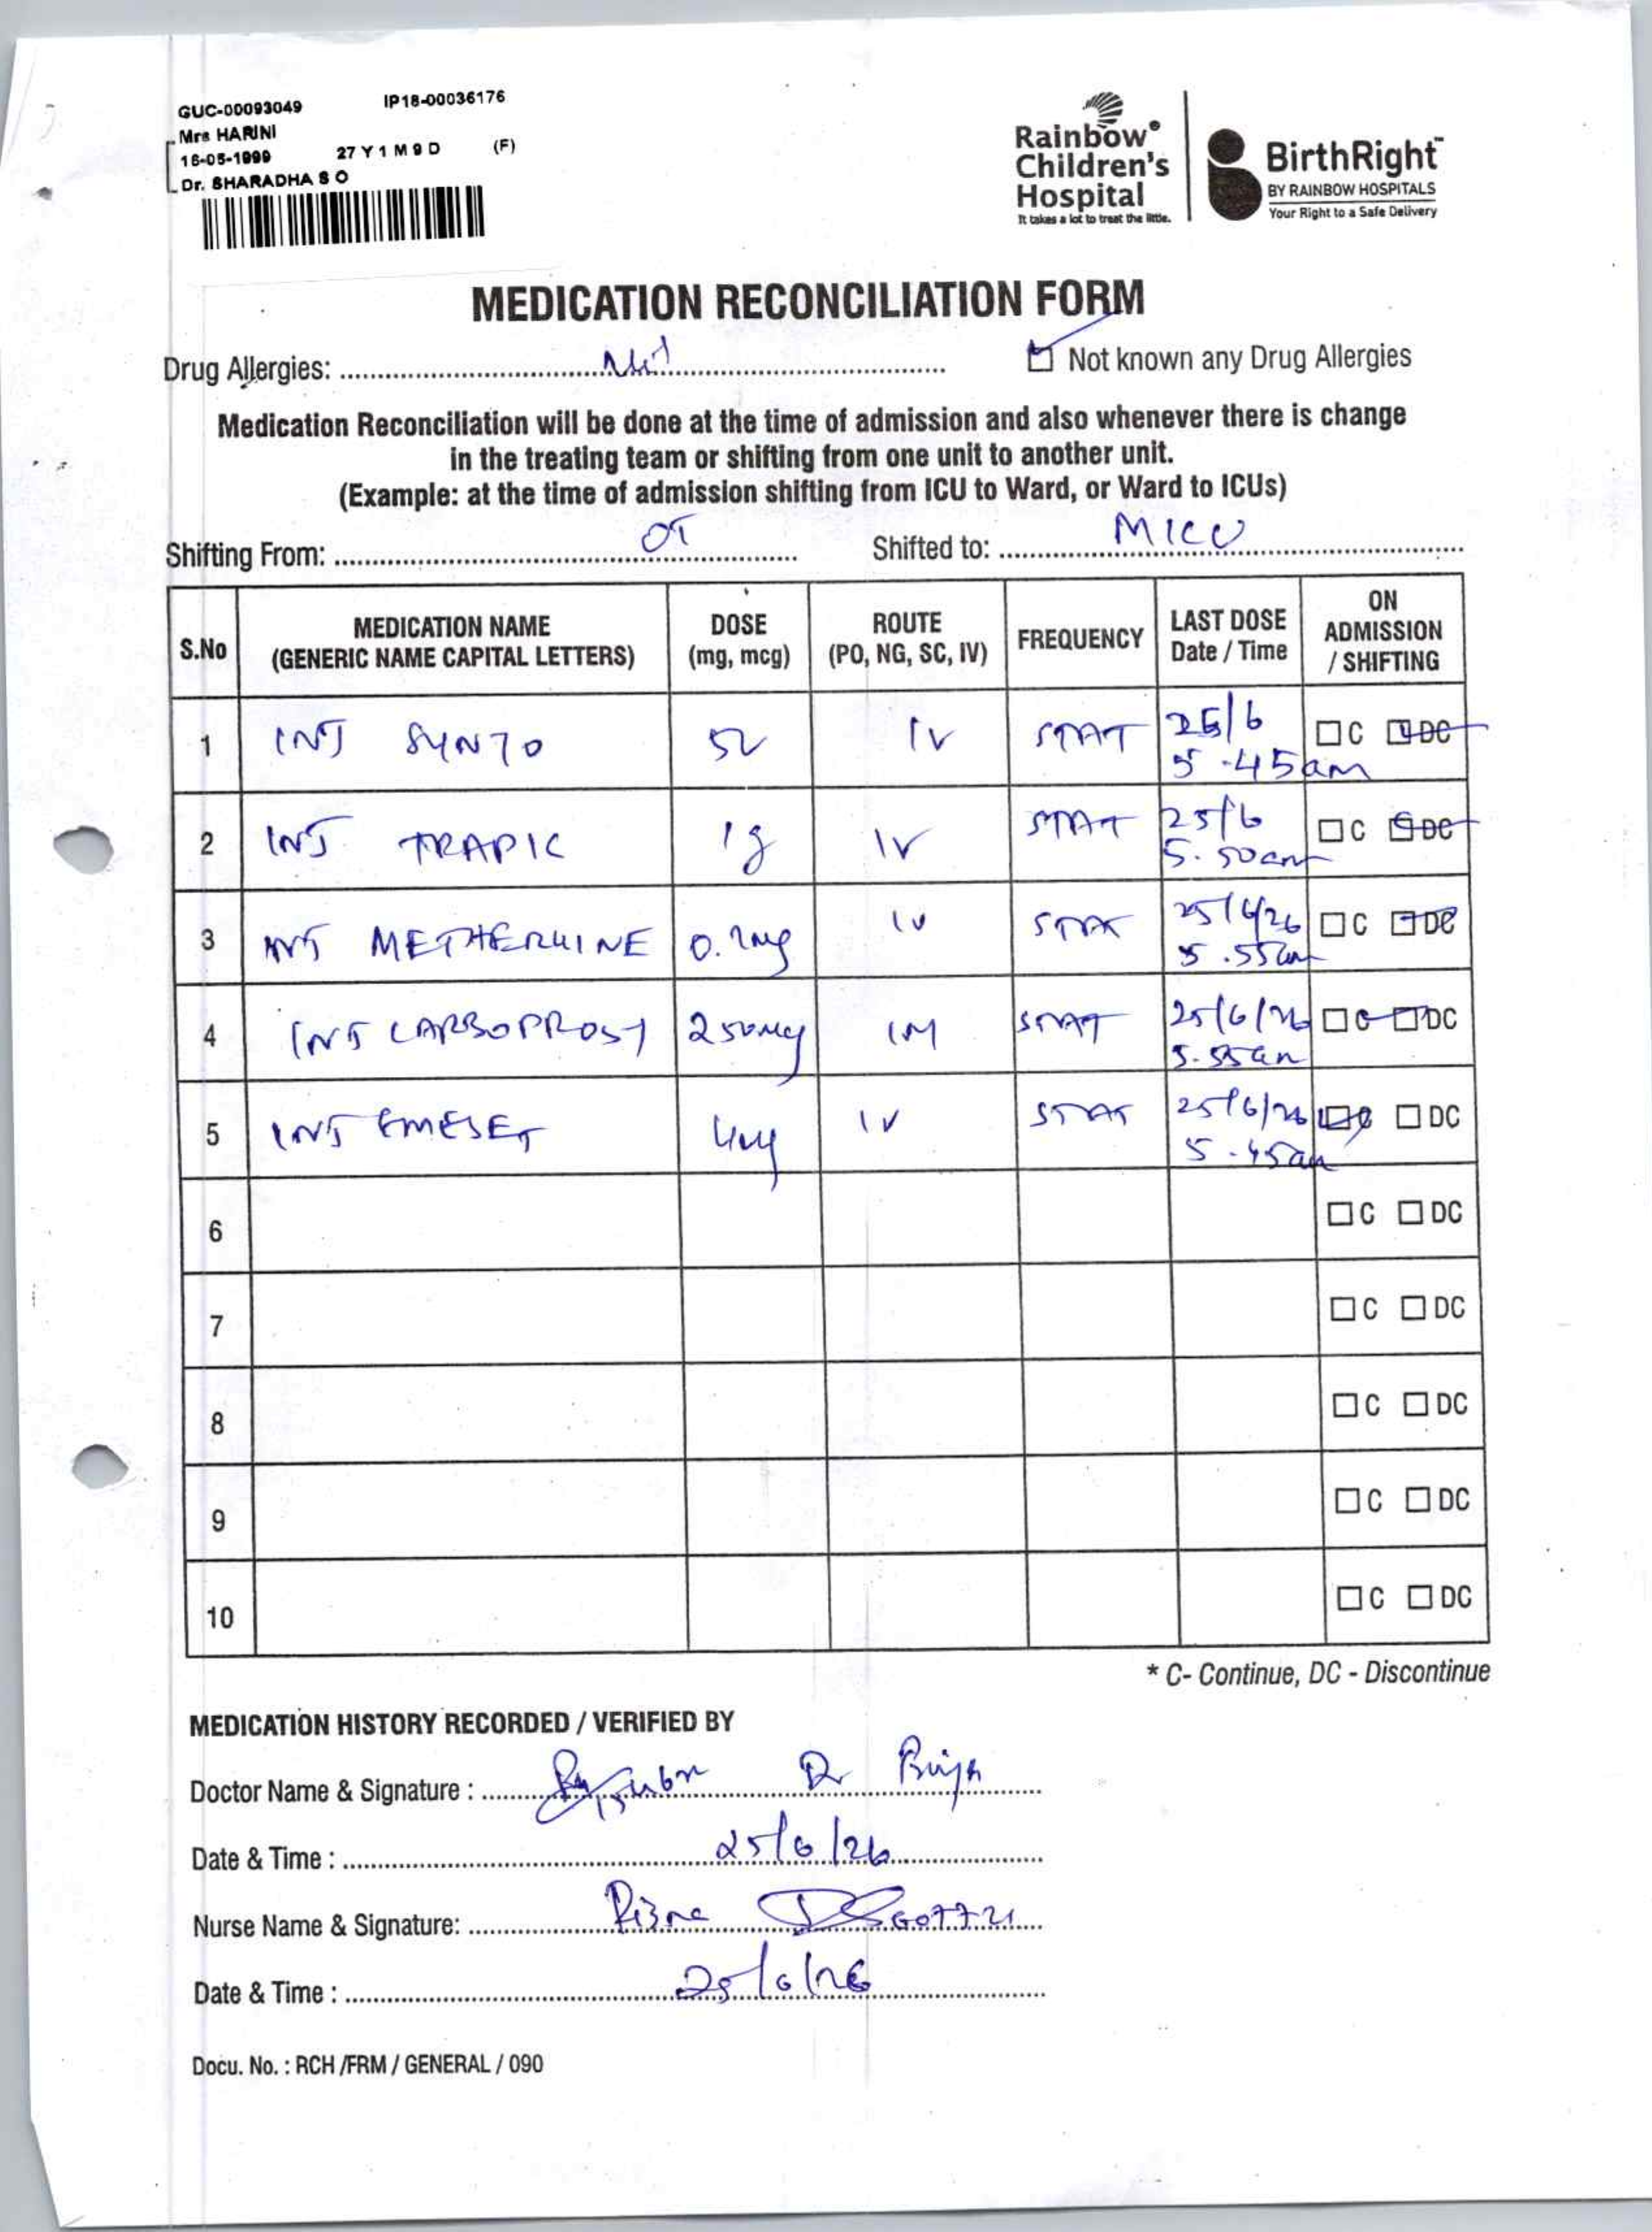 GUC-00093049 IP18-00036176
Mrs HARINI
16-05-1999 27 Y 1 M 9 D (F)
Dr. SHARADHA S O
Rainbow®
Children's
Hospital
It takes a lot to treat the little.
BirthRight™
BY RAINBOW HOSPITALS
Your Right to a Safe Delivery
MEDICATION RECONCILIATION FORM
Drug Allergies: Nil Not known any Drug Allergies
Medication Reconciliation will be done at the time of admission and also whenever there is change
in the treating team or shifting from one unit to another unit.
(Example: at the time of admission shifting from ICU to Ward, or Ward to ICUs)
Shifting From: OT Shifted to: MICU
S.No MEDICATION NAME (GENERIC NAME CAPITAL LETTERS) DOSE (mg, mcg) ROUTE (PO, NG, SC, IV) FREQUENCY LAST DOSE Date / Time ON ADMISSION / SHIFTING
1 INJ SYNTO IV STAT 25/6 5.45am C DC
2 INJ TRAPIC 1g IV STAT 25/6 5.50am C DC
3 INJ METHERGINE 0.2mg IV STAT 25/6/26 5.55am C DC
4 INJ CARBOPROST 250mcg IM STAT 25/6/26 5.55am C DC
5 INJ EMESET 4mg IV STAT 25/6/26 5.45am C DC
6 C DC
7 C DC
8 C DC
9 C DC
10 C DC
* C- Continue, DC - Discontinue
MEDICATION HISTORY RECORDED / VERIFIED BY
Doctor Name & Signature : Dr Priya
Date & Time : 25/6/26
Nurse Name & Signature:
Date & Time : 25/6/26
Docu. No. : RCH /FRM / GENERAL / 090